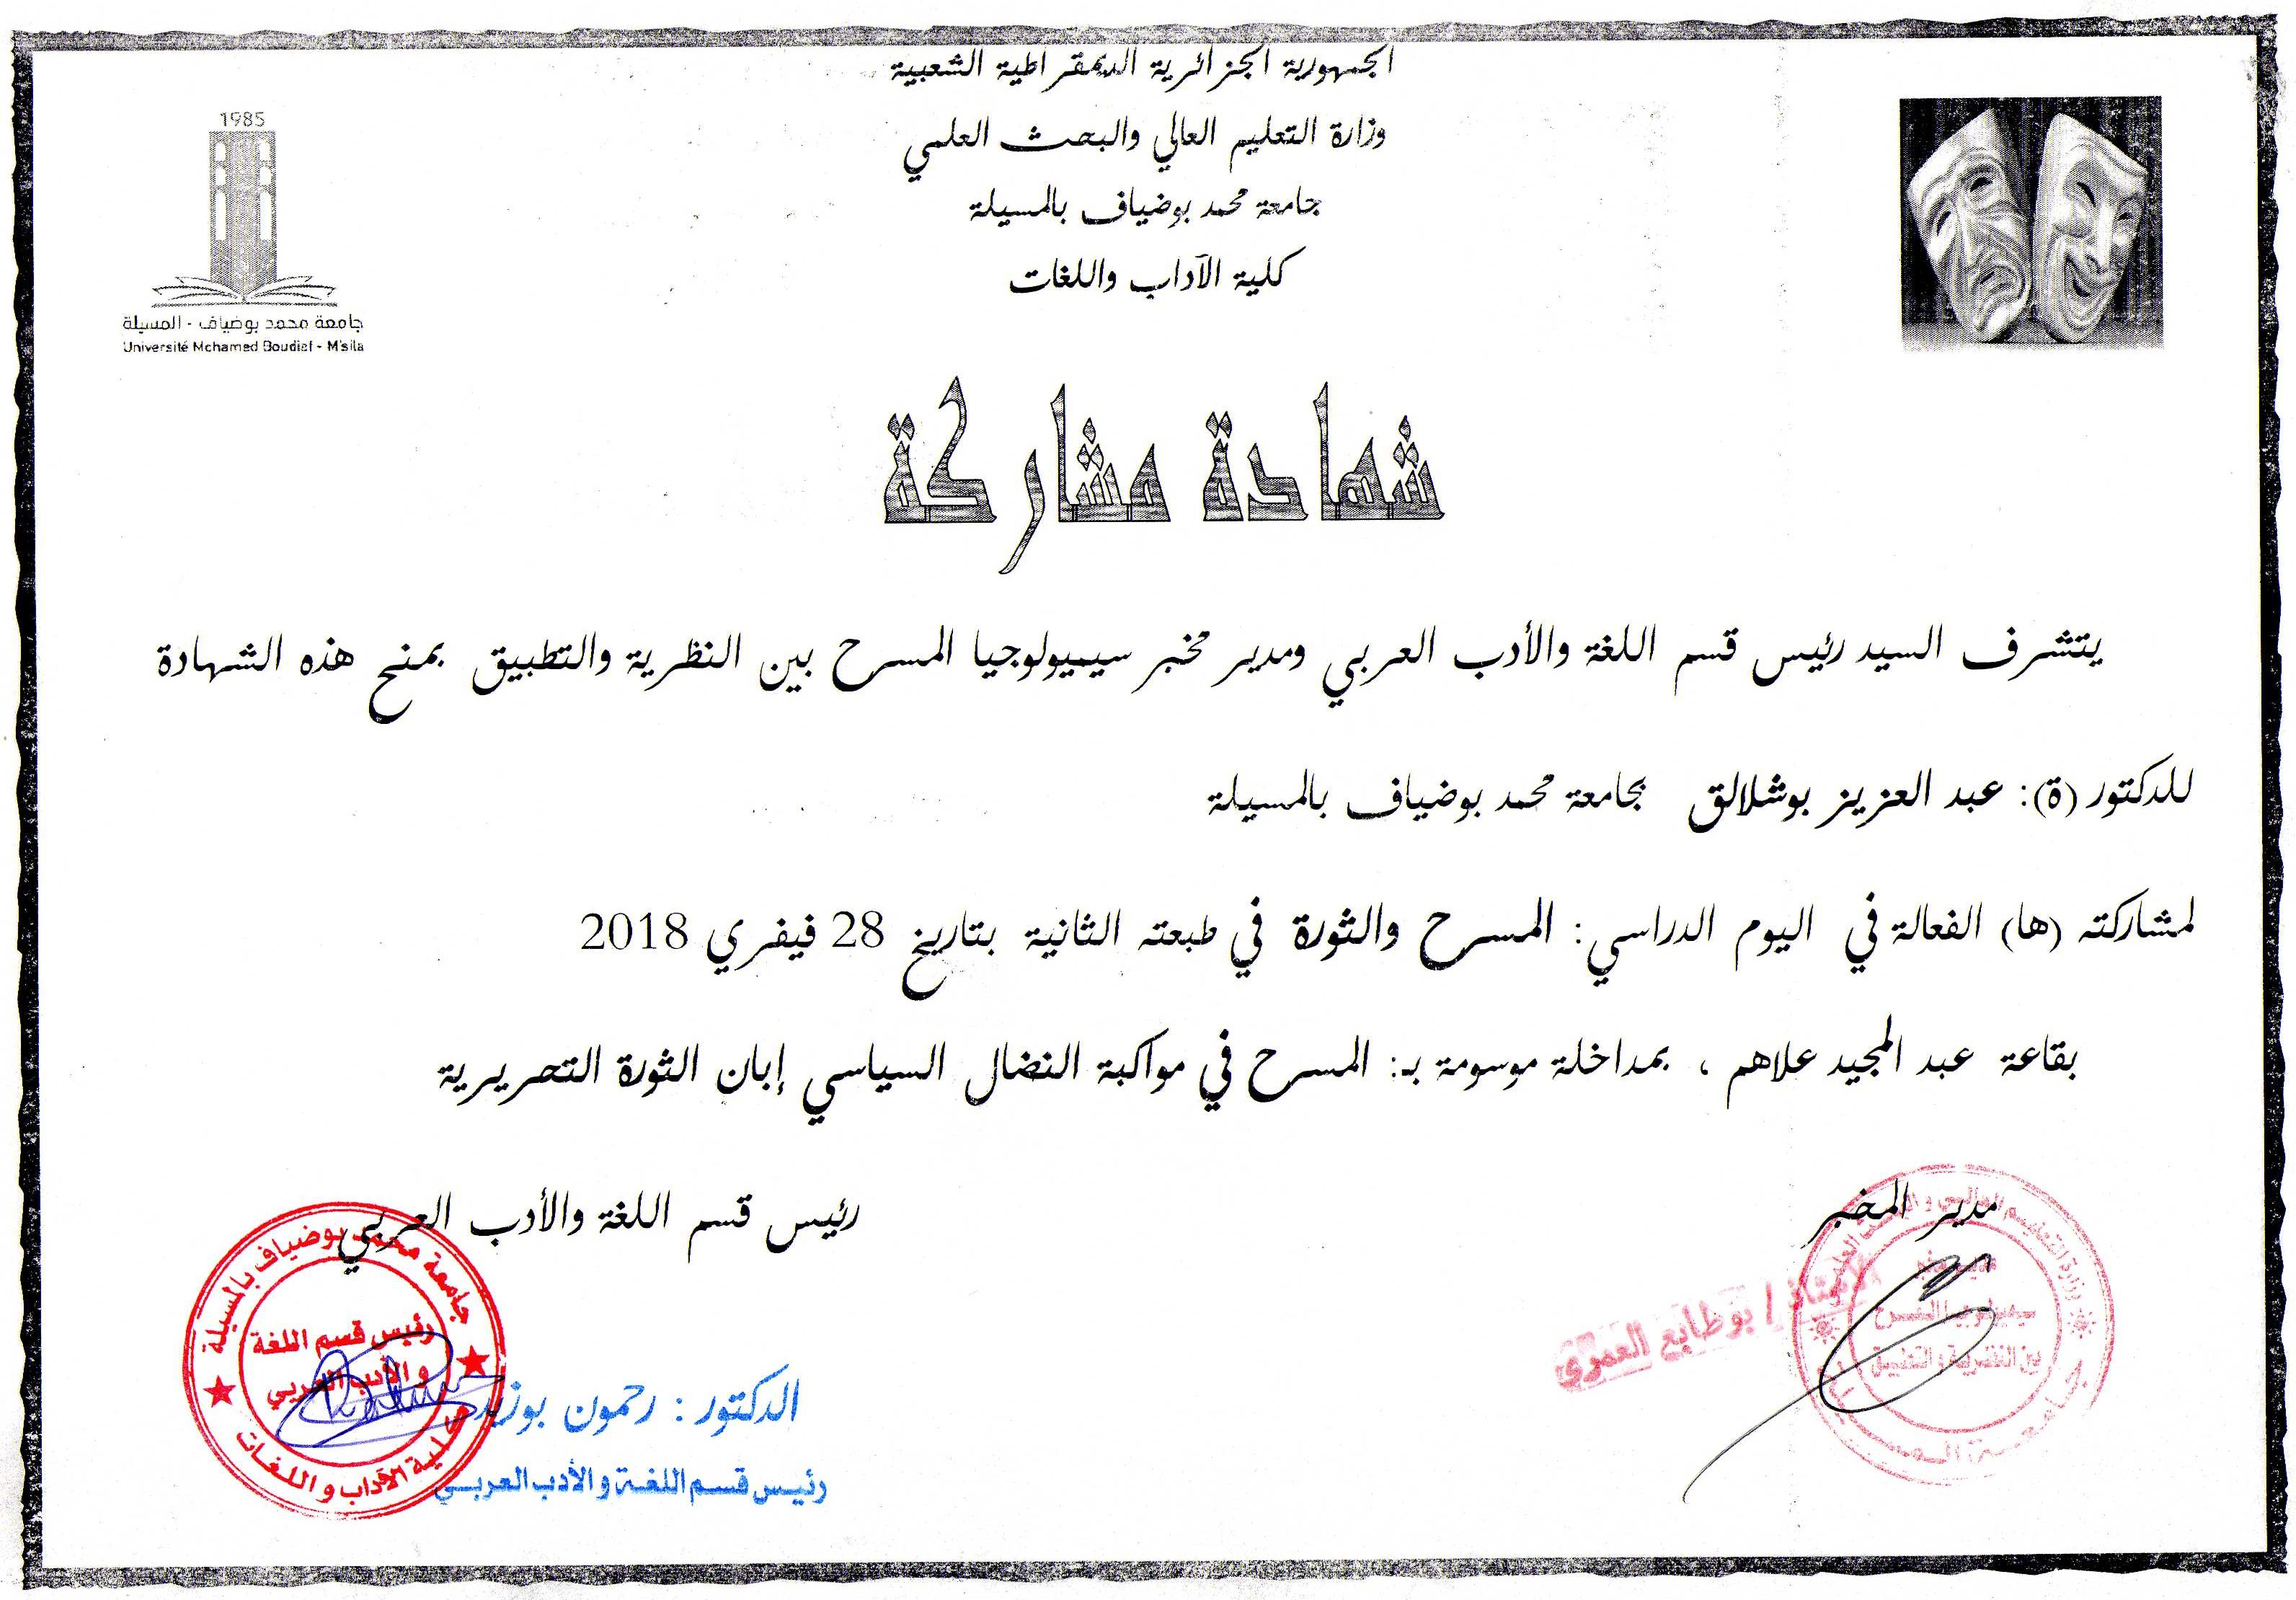 الجمهورية الجزائرية الديمقراطية الشعبية
وزارة التعليم العالي والبحث العلمي
جامعة محمد بوضياف بالمسيلة
كلية الآداب واللغات
1985
جامعة محمد بوضياف - المسيلة
Université Mohamed Boudiaf - M'sila
شهادة مشاركة
يتشرف السيد رئيس قسم اللغة والأدب العربي ومدير مخبر سيميولوجيا المسرح بين النظرية والتطبيق بمنح هذه الشهادة
للدكتور (ة): عبد العزيز بوشلالق بجامعة محمد بوضياف بالمسيلة
لمشاركته (ها) الفعالة في اليوم الدراسي: المسرح والثورة في طبعته الثانية بتاريخ 28 فيفري 2018
بقاعة عبد المجيد علاهم ، بمداخلة موسومة بـ: المسرح في مواكبة النضال السياسي إبان الثورة التحريرية
مدير المخبر
رئيس قسم اللغة والأدب العربي
الأستاذ / بوطابع العمري
سيميولوجيا المسرح
بين النظرية والتطبيق
جامعة محمد بوضياف بالمسيلة
رئيس قسم اللغة
و الأدب العربي
كلية الآداب و اللغات
الدكتور : رحمون بوزيد
رئيس قسم اللغة و الأدب العربي